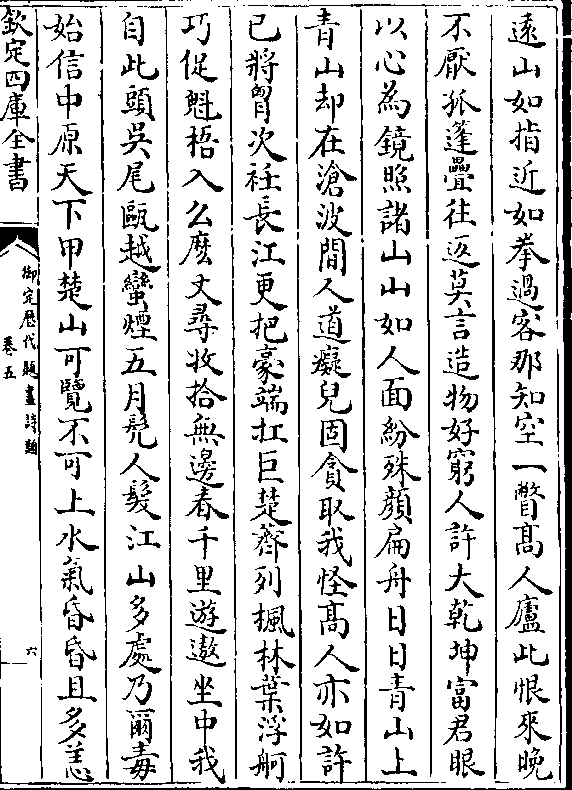 遠山如指近如拳過客那知空一瞥髙人廬此恨來晚
不厭孤蓬疊往返莫言造物好窮人許大乾坤富君眼
以心為鏡照諸山山如人面紛殊顔扁舟日日青山上
青山却在滄波間人道癡兒固貪取我怪髙人亦如許
已將胷次衽長江更把豪端扛巨楚薺列楓林葉浮舸
巧促魁梧入么麽丈尋收拾無邊春千里遊遨坐中我
自此頭吳尾甌越蠻煙五月髠人髮江山多處乃爾毒
始信中原天下甲楚山可覽不可上水氣昏昏且多恙
欽定四庫全書
御定歴代題畫詩類
卷五
六